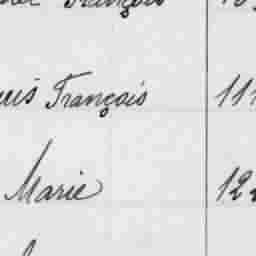 François
uis François 111
Marie 12